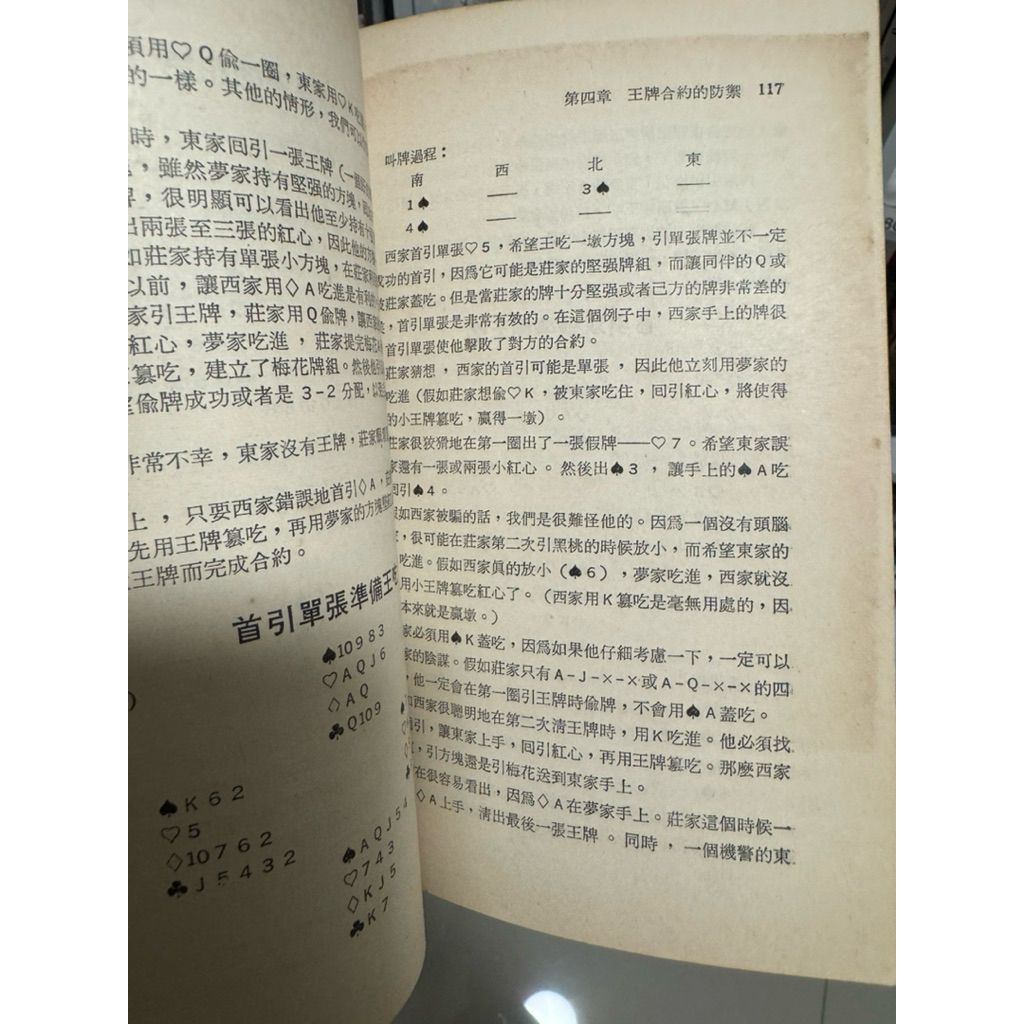 頁用♡Q偷一圈，東家用♡K
的一樣。其他的情形，我們可以
時，東家回引一張王牌（一
，雖然夢家持有堅强的方塊，
，很明顯可以看出他至少持有
出兩張至三張的紅心，因此他的方
如莊家持有單張小方塊，在莊家
以前，讓西家用♢A吃進是有利的
家引王牌，莊家用Q偷牌，讓西家
紅心，夢家吃進，莊家提完梅花
篡吃，建立了梅花牌組。然後他
偷牌成功或者是3-2分配，以
非常不幸，東家沒有王牌，莊家
上，只要西家錯誤地首引♢A，
先用王牌篡吃，再用夢家的方塊
王牌而完成合約。
首引單張準備王吃
♠10983
♡AQJ6
♢AQ
♣Q109
♠K62
♡5
♢10762
♣J5432
♠AQJ54
♡743
♢KJ5
♣K7
第四章　王牌合約的防禦　117
叫牌過程：
南　西　北　東
1♠　——　3♠　——
4♠　——　——　——
西家首引單張♡5，希望王吃一墩方塊，引單張牌並不一定
功的首引，因爲它可能是莊家的堅强牌組，而讓同伴的Q或
莊家蓋吃。但是當莊家的牌十分堅强或者己方的牌非常差的
，首引單張是非常有效的。在這個例子中，西家手上的牌很
首引單張使他擊敗了對方的合約。
莊家猜想，西家的首引可能是單張，因此他立刻用夢家的
吃進（假如莊家想偷♡K，被東家吃住，回引紅心，將使得
的小王牌篡吃，贏得一墩）。
莊家很狡猾地在第一圈出了一張假牌——♡7。希望東家誤
家還有一或兩張小紅心。然後出♠3，讓手上的♠A吃
回引♠4。
如西家被騙的話，我們是很難怪他的。因爲一個沒有頭腦
，很可能在莊家第二次引黑桃的時候放小，而希望東家的
吃進。假如西家眞的放小（♠6），夢家吃進，西家就沒
用小王牌篡吃紅心了。（西家用K篡吃是毫無用處的，因
本來就是贏墩。）
家必須用♠K蓋吃，因爲如果他仔細考慮一下，一定可以
家的陰謀。假如莊家只有A-J-×-×或A-Q-×-×的四
，他一定會在第一圈引王牌時偷牌，不會用♠A蓋吃。
如西家很聰明地在第二次淸王牌時，用K吃進。他必須找
引，讓東家上手，回引紅心，再用王牌篡吃。那麽西家
，引方塊還是引梅花送到東家手上。
在很容易看出，因爲♢A在夢家手上。莊家這個時候一
♢A上手，淸出最後一張王牌。同時，一個機警的東